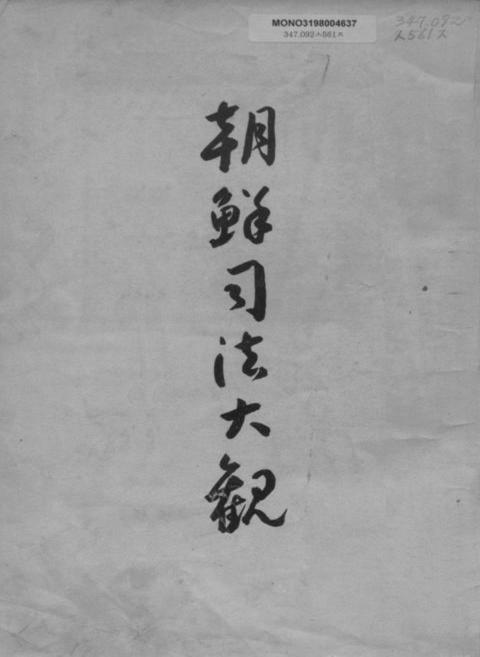 MONO3198004637
347.092ㅅ561ㅈ
347.092
ㅅ561ㅈ
朝鮮司法大觀